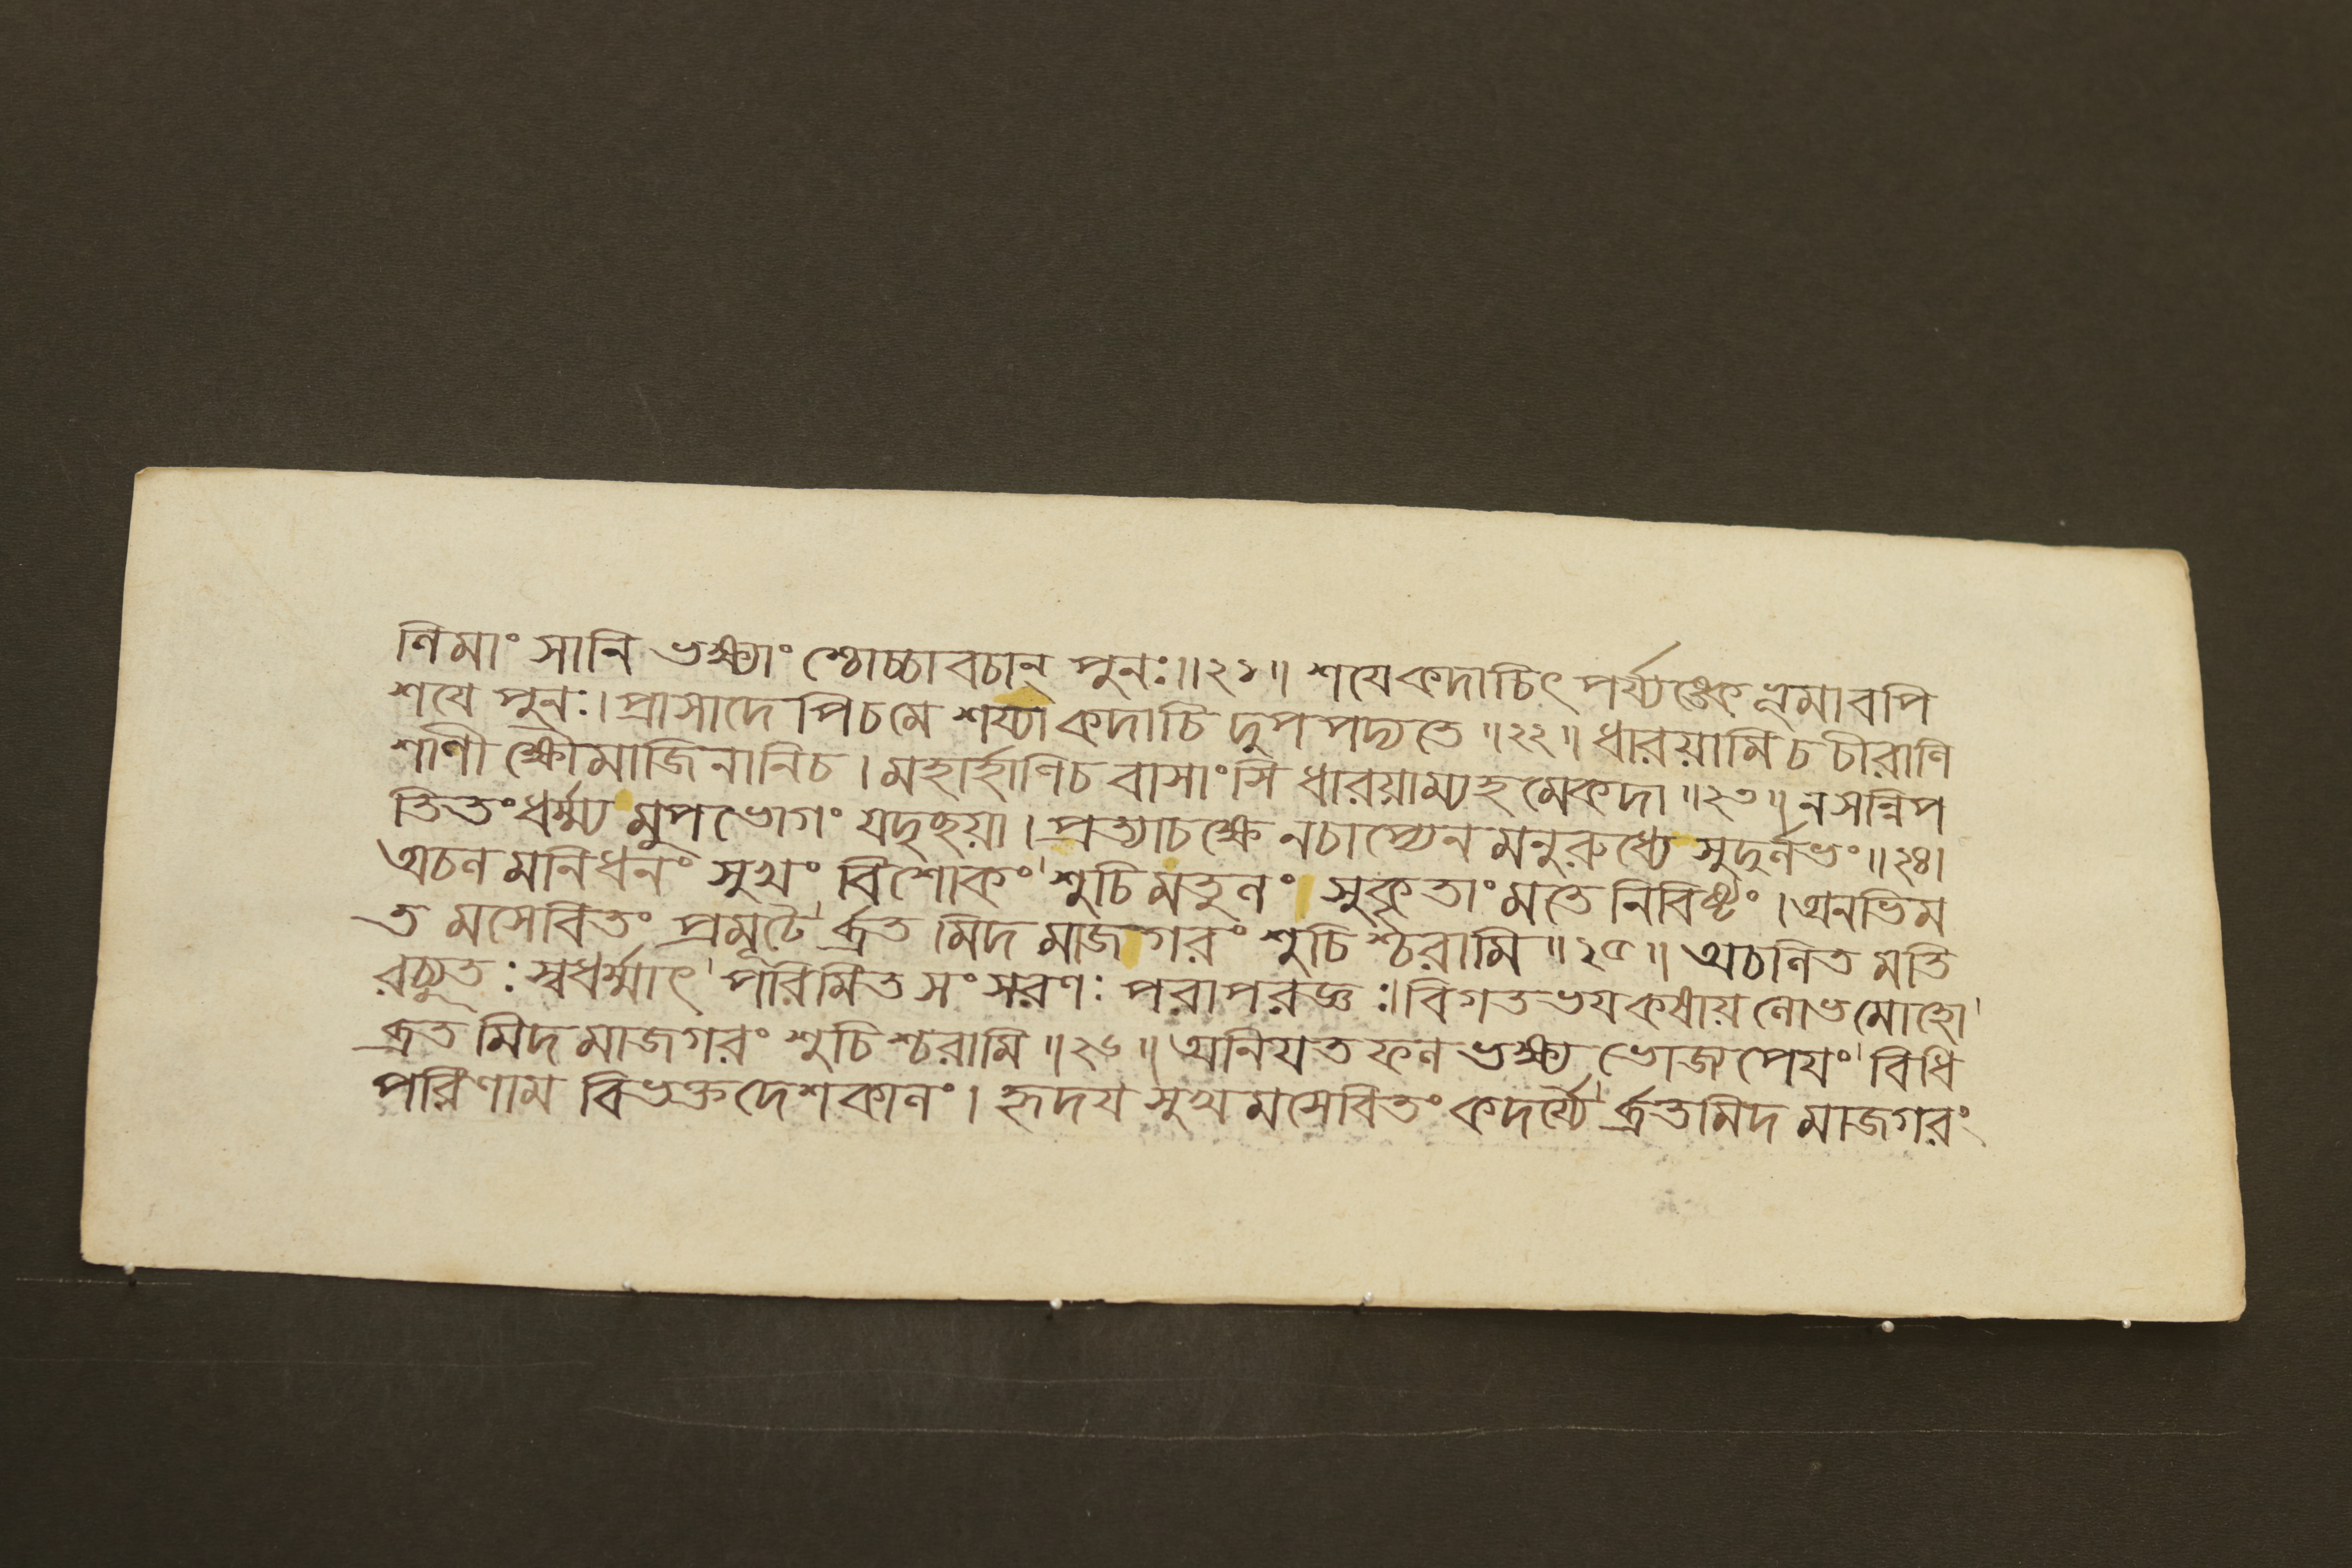 ণিমাংসানি ভক্ষ্যাংশ্চোচ্চাবচান্ পুনঃ॥২১॥ শযেকদাচিৎ পর্য্যঙ্কে ভূমাবপি
শযে পুনঃ। প্রাসাদে পিচমে শয্যা কদাচি দুপপদ্যতে ॥২২॥ ধারয়ামি চ চীরাণি
শাণী ক্ষৌমাজিনানিচ। মহার্হাণিচ বাসাংসি ধারয়াম্যহমেকদা ॥২৩॥ ন সন্নিপ
তিতংধর্ম্ম্য মুপভোগং যদৃছয়া। প্রত্যাচক্ষে নচাপ্যেন মনুরুধ্যে সুদুর্লভং॥২৪।
অচল মনিধনং সুখং বিশোকং শুচিমতুলং সুকৃতাংমতে নিবিষ্টং। অনভিম
ত মসেবিতং প্রমূঢৈ র্ব্রত মিদ মাজগরং শুচিশ্চরামি॥২৫॥ অচলিত মতি
রচ্যুতঃ স্বধর্ম্মাৎ পরিমিত সংসরণঃ পরাপরজ্ঞঃ। বিগতভযকষায় লোভমোহো
ব্রত মিদ মাজগরং শুচিশ্চরামি ॥২৬॥ অনিযত ফল ভক্ষ্য ভোজ্য পেযং বিধি
পরিণাম বিভক্তদেশকালং। হৃদয সুখ মসেবিতং কদর্য্যৈ র্ব্রতমিদ মাজগরং